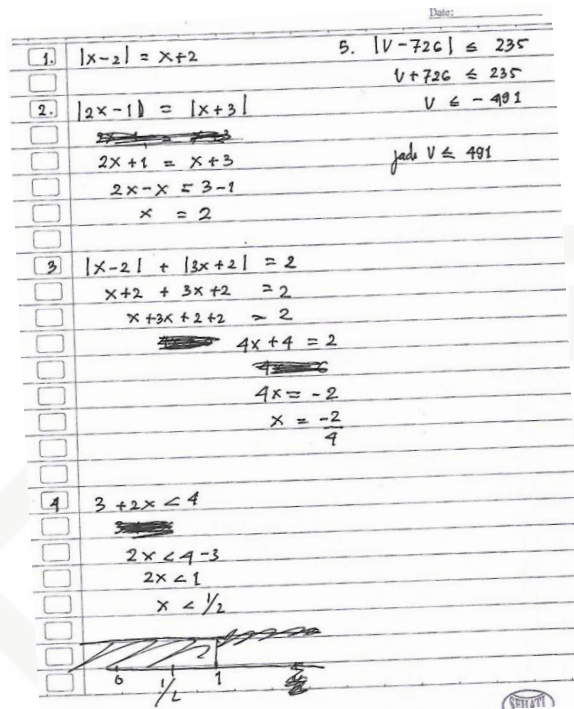 Date:
1. |x-2| = x+2
2. |2x-1| = |x+3|
2x+1 = x+3
2x-x = 3-1
x = 2
3 |x-2| + |3x+2| = 2
x+2 + 3x+2 = 2
x+3x+2+2 = 2
4x+4 = 2
4x = -2
x = -2/4
4 3+2x < 4
2x < 4-3
2x < 1
x < 1/2
0 1/2 1
5. |V-726| ≤ 235
V+726 ≤ 235
V ≤ -491
jadi V ≤ 491
SEHATI